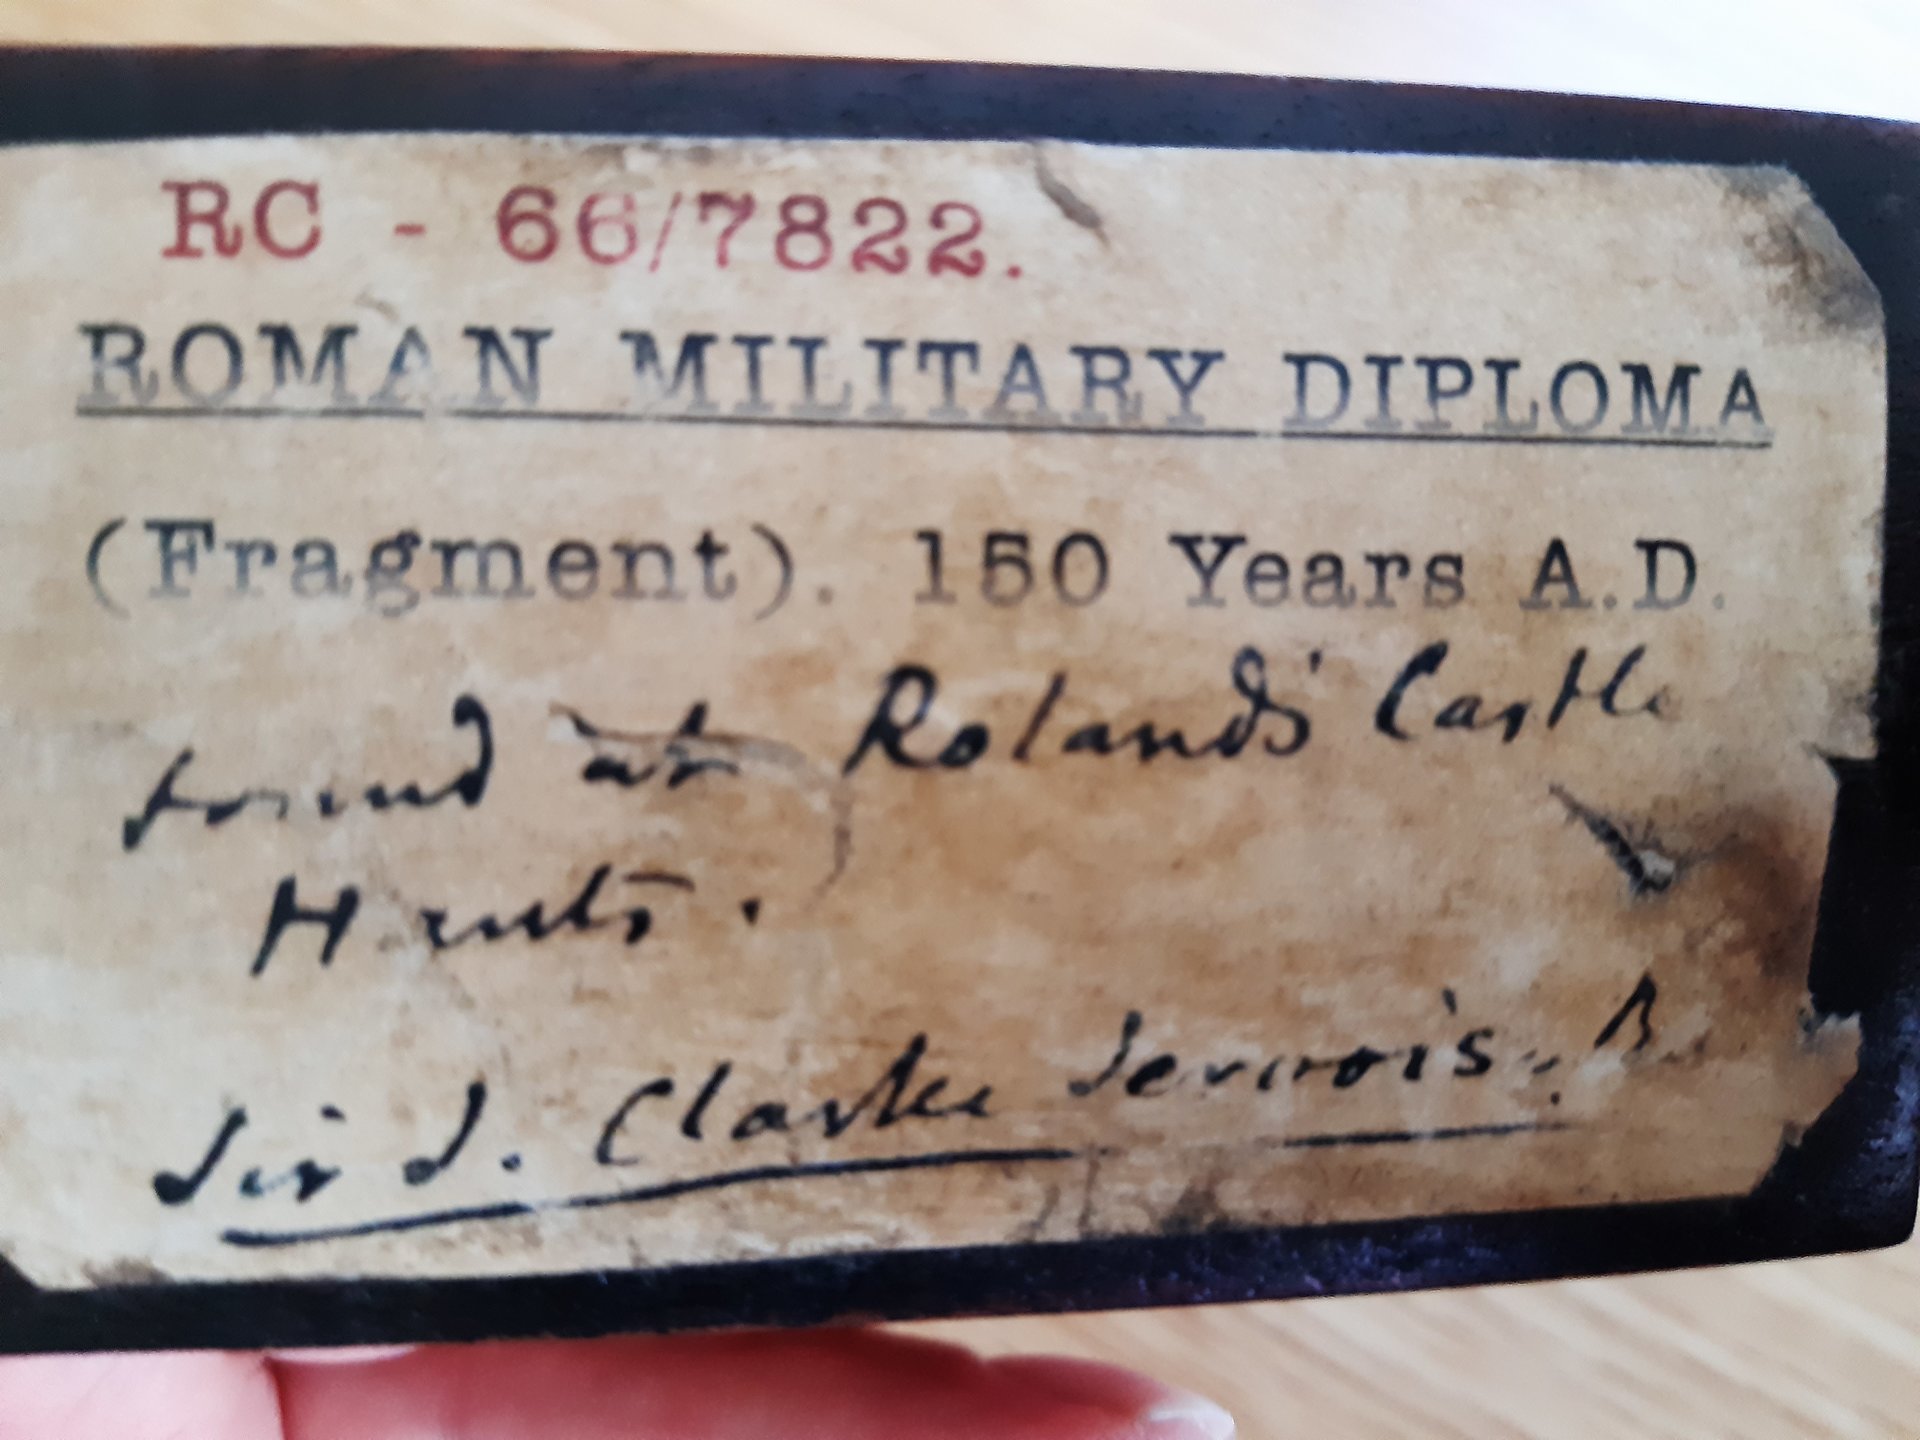 RC - 66/7822.
ROMAN MILITARY DIPLOMA
(Fragment). 150 Years A.D.
found at Rolands' Castle
Hants.
Sir J. Clarke Jervois. B